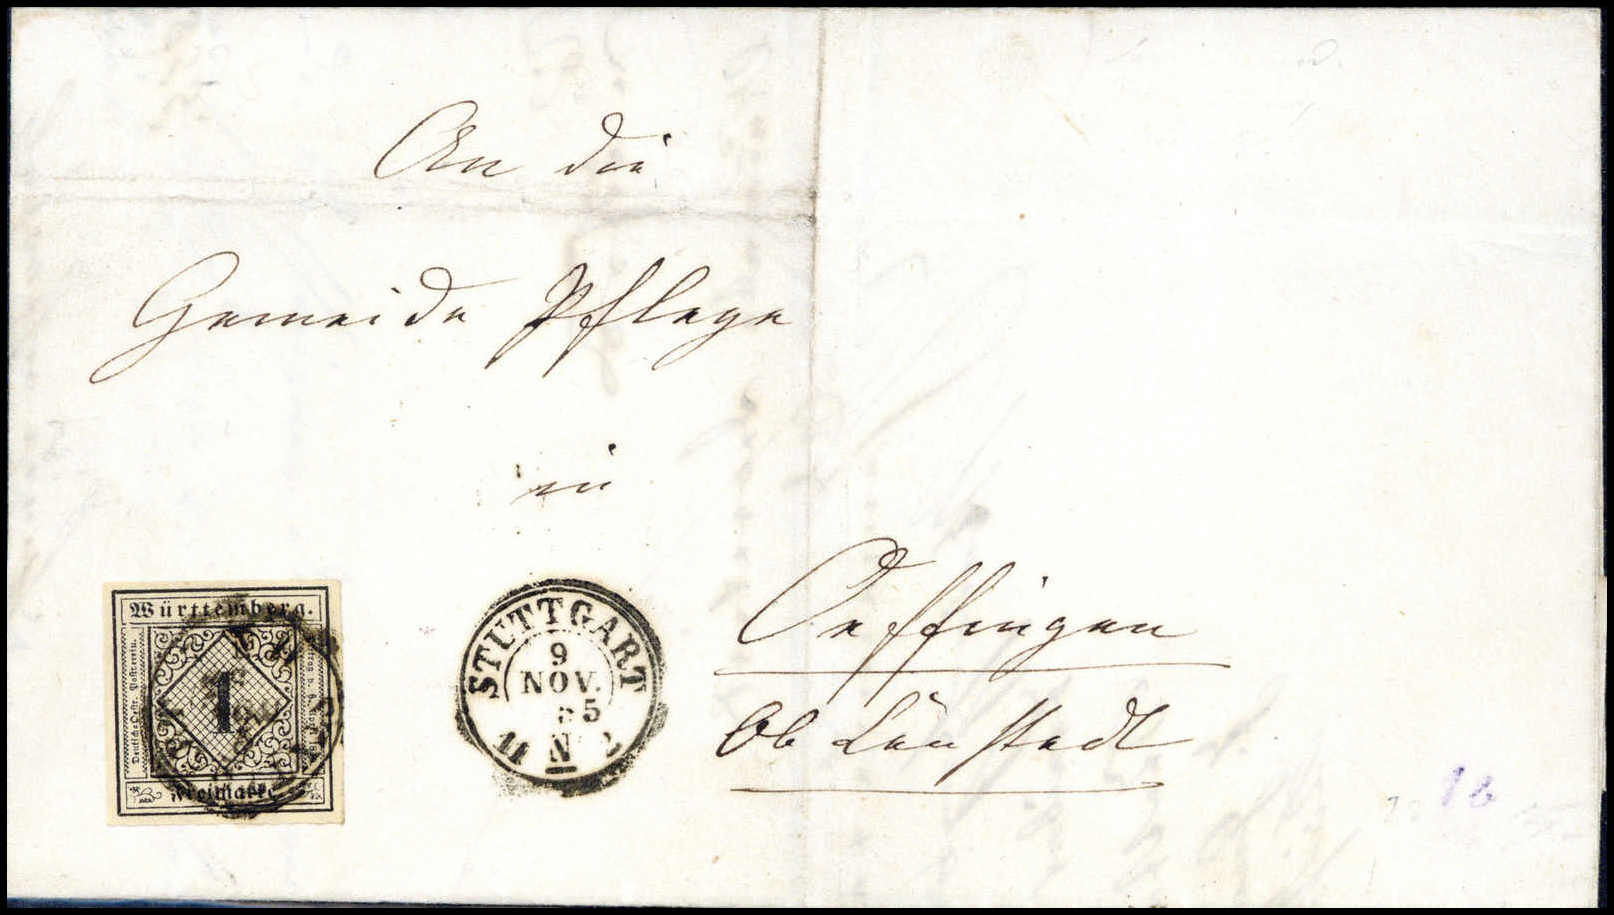 An die
Gemeide Pflege
in
Oeffingen
Württemberg.
Deutsch-Oestr. Postverein.
1
Freimarke
STUTTGART
9
NOV.
55
11 N 2
1b